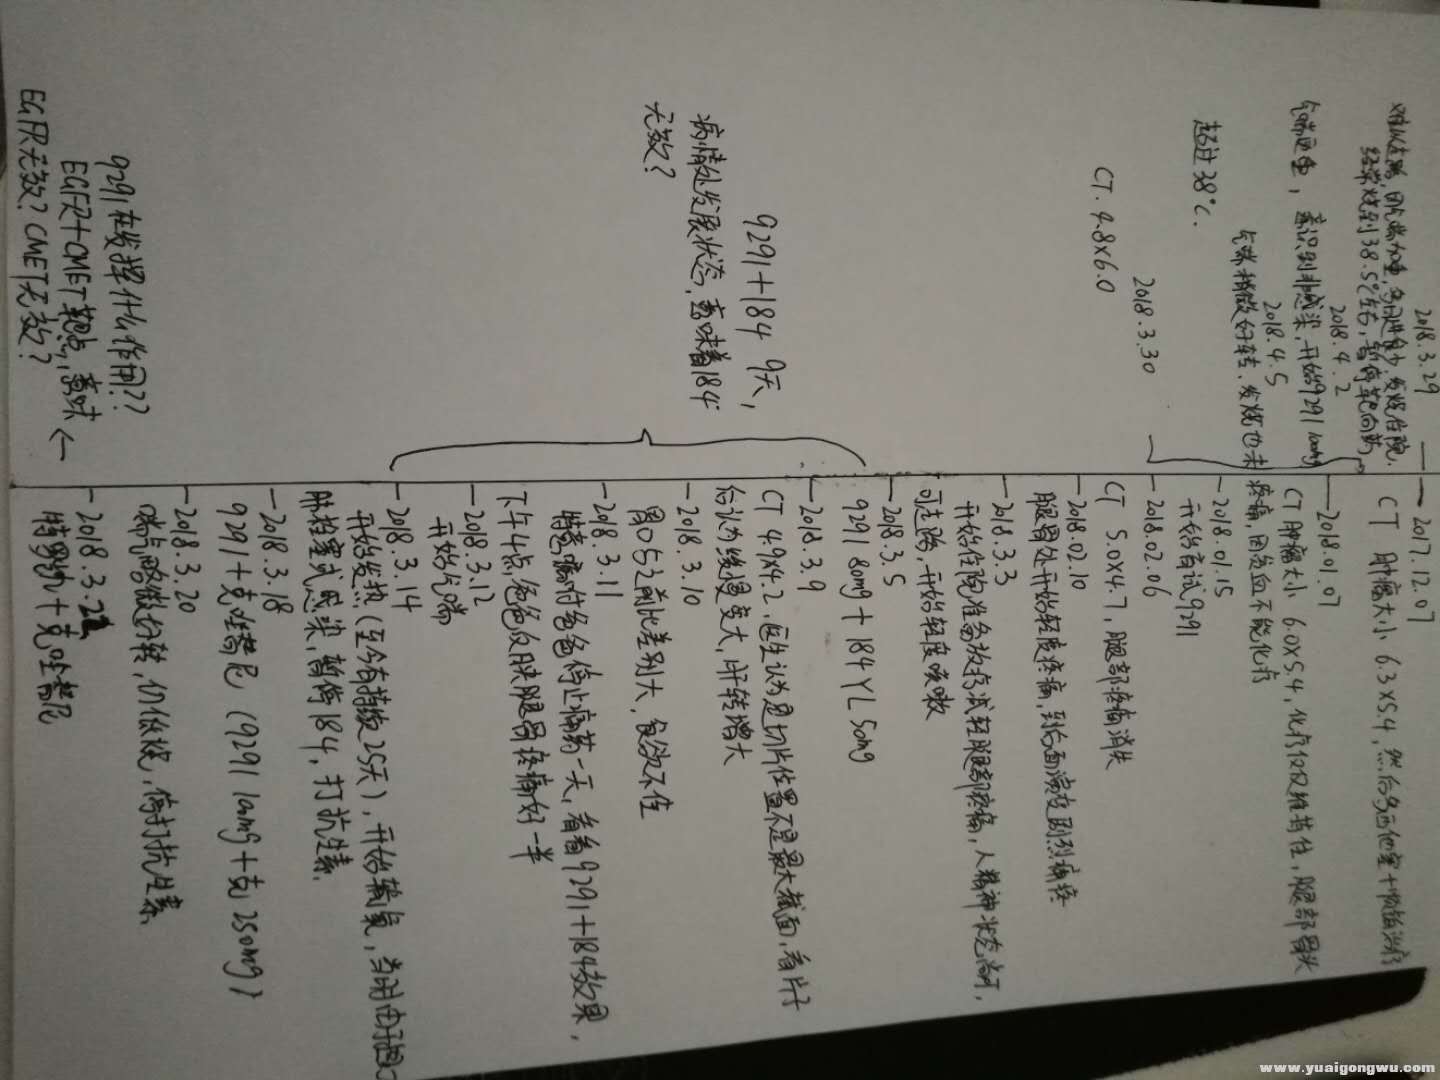 2017.12.07
CT 肿瘤大小 6.3×5.4,然后多西他塞+ 治疗
2018.01.07
CT 肿瘤大小 6.0×5.4,化疗仅仅维持住,腿部骨头
疼痛,因贫血不能化疗
2018.01.15
开始盲试9291
2018.02.06
CT 5.0×4.7,腿部疼痛消失
2018.02.10
腿骨处开始轻度疼痛,到后面演变剧烈疼痛
2018.3.3
开始住院准备放疗减轻腿部疼痛,人精神状态尚可,
可走路,开始轻度咳嗽
2018.3.5
9291 80mg + 184 YL 50mg
2018.3.9
CT 4.9×4.2,医生认为是切片位置不是最大截面,看片子
后认为缓慢变大,由 转增大
2018.3.10
胃口与之前比差别大,食欲不佳
2018.3.11
特意嘱咐爸爸停止痛药一天,看看9291+184效果,
下午4点,爸爸反映腿骨疼痛好一半
2018.3.12
开始气喘
2018.3.14
开始发热(至今有持续25天),开始输氧,当时由于担心
肺栓塞或感染,暂停184,打抗生素.
2018.3.18
9291+克唑替尼 (9291 100mg+克 250mg)
2018.3.20
喘气略微好转,仍低烧,停打抗生素.
2018.3.22
特罗 + 克唑替尼
2018.3.29
因气喘加重, 发烧住院.
经常烧到38.5℃左右,暂停靶向药
2018.4.2
气喘更重,意识到非感染,开始9291 100mg
2018.4.5
气喘稍微好转,发烧也未
超过38℃.
2018.3.30
CT. 4.8×6.0
9291+184 9天,
病情处发展状态,意味着184
无效?
9291在发挥什么作用??
EGFR+CMET靶点,意味 ←
EGFR无效?CMET无效?
www.yuaigongwu.com